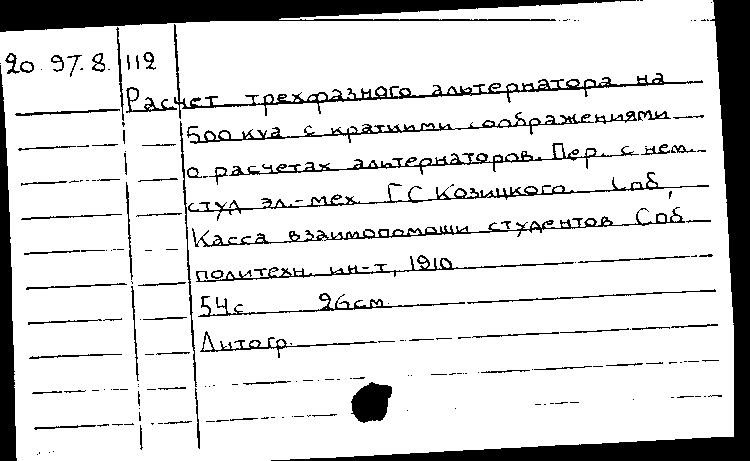 20.97.8. 112
Расчет трехфазного альтернатора на
500 ква с краткими соображениями
о расчетах альтернаторов. Пер. с нем.
студ эл.-мех Г С Козицкого. Спб,
Касса взаимопомощи студентов Спб
политехн. ин-т, 1910
54с 26см
Литогр.